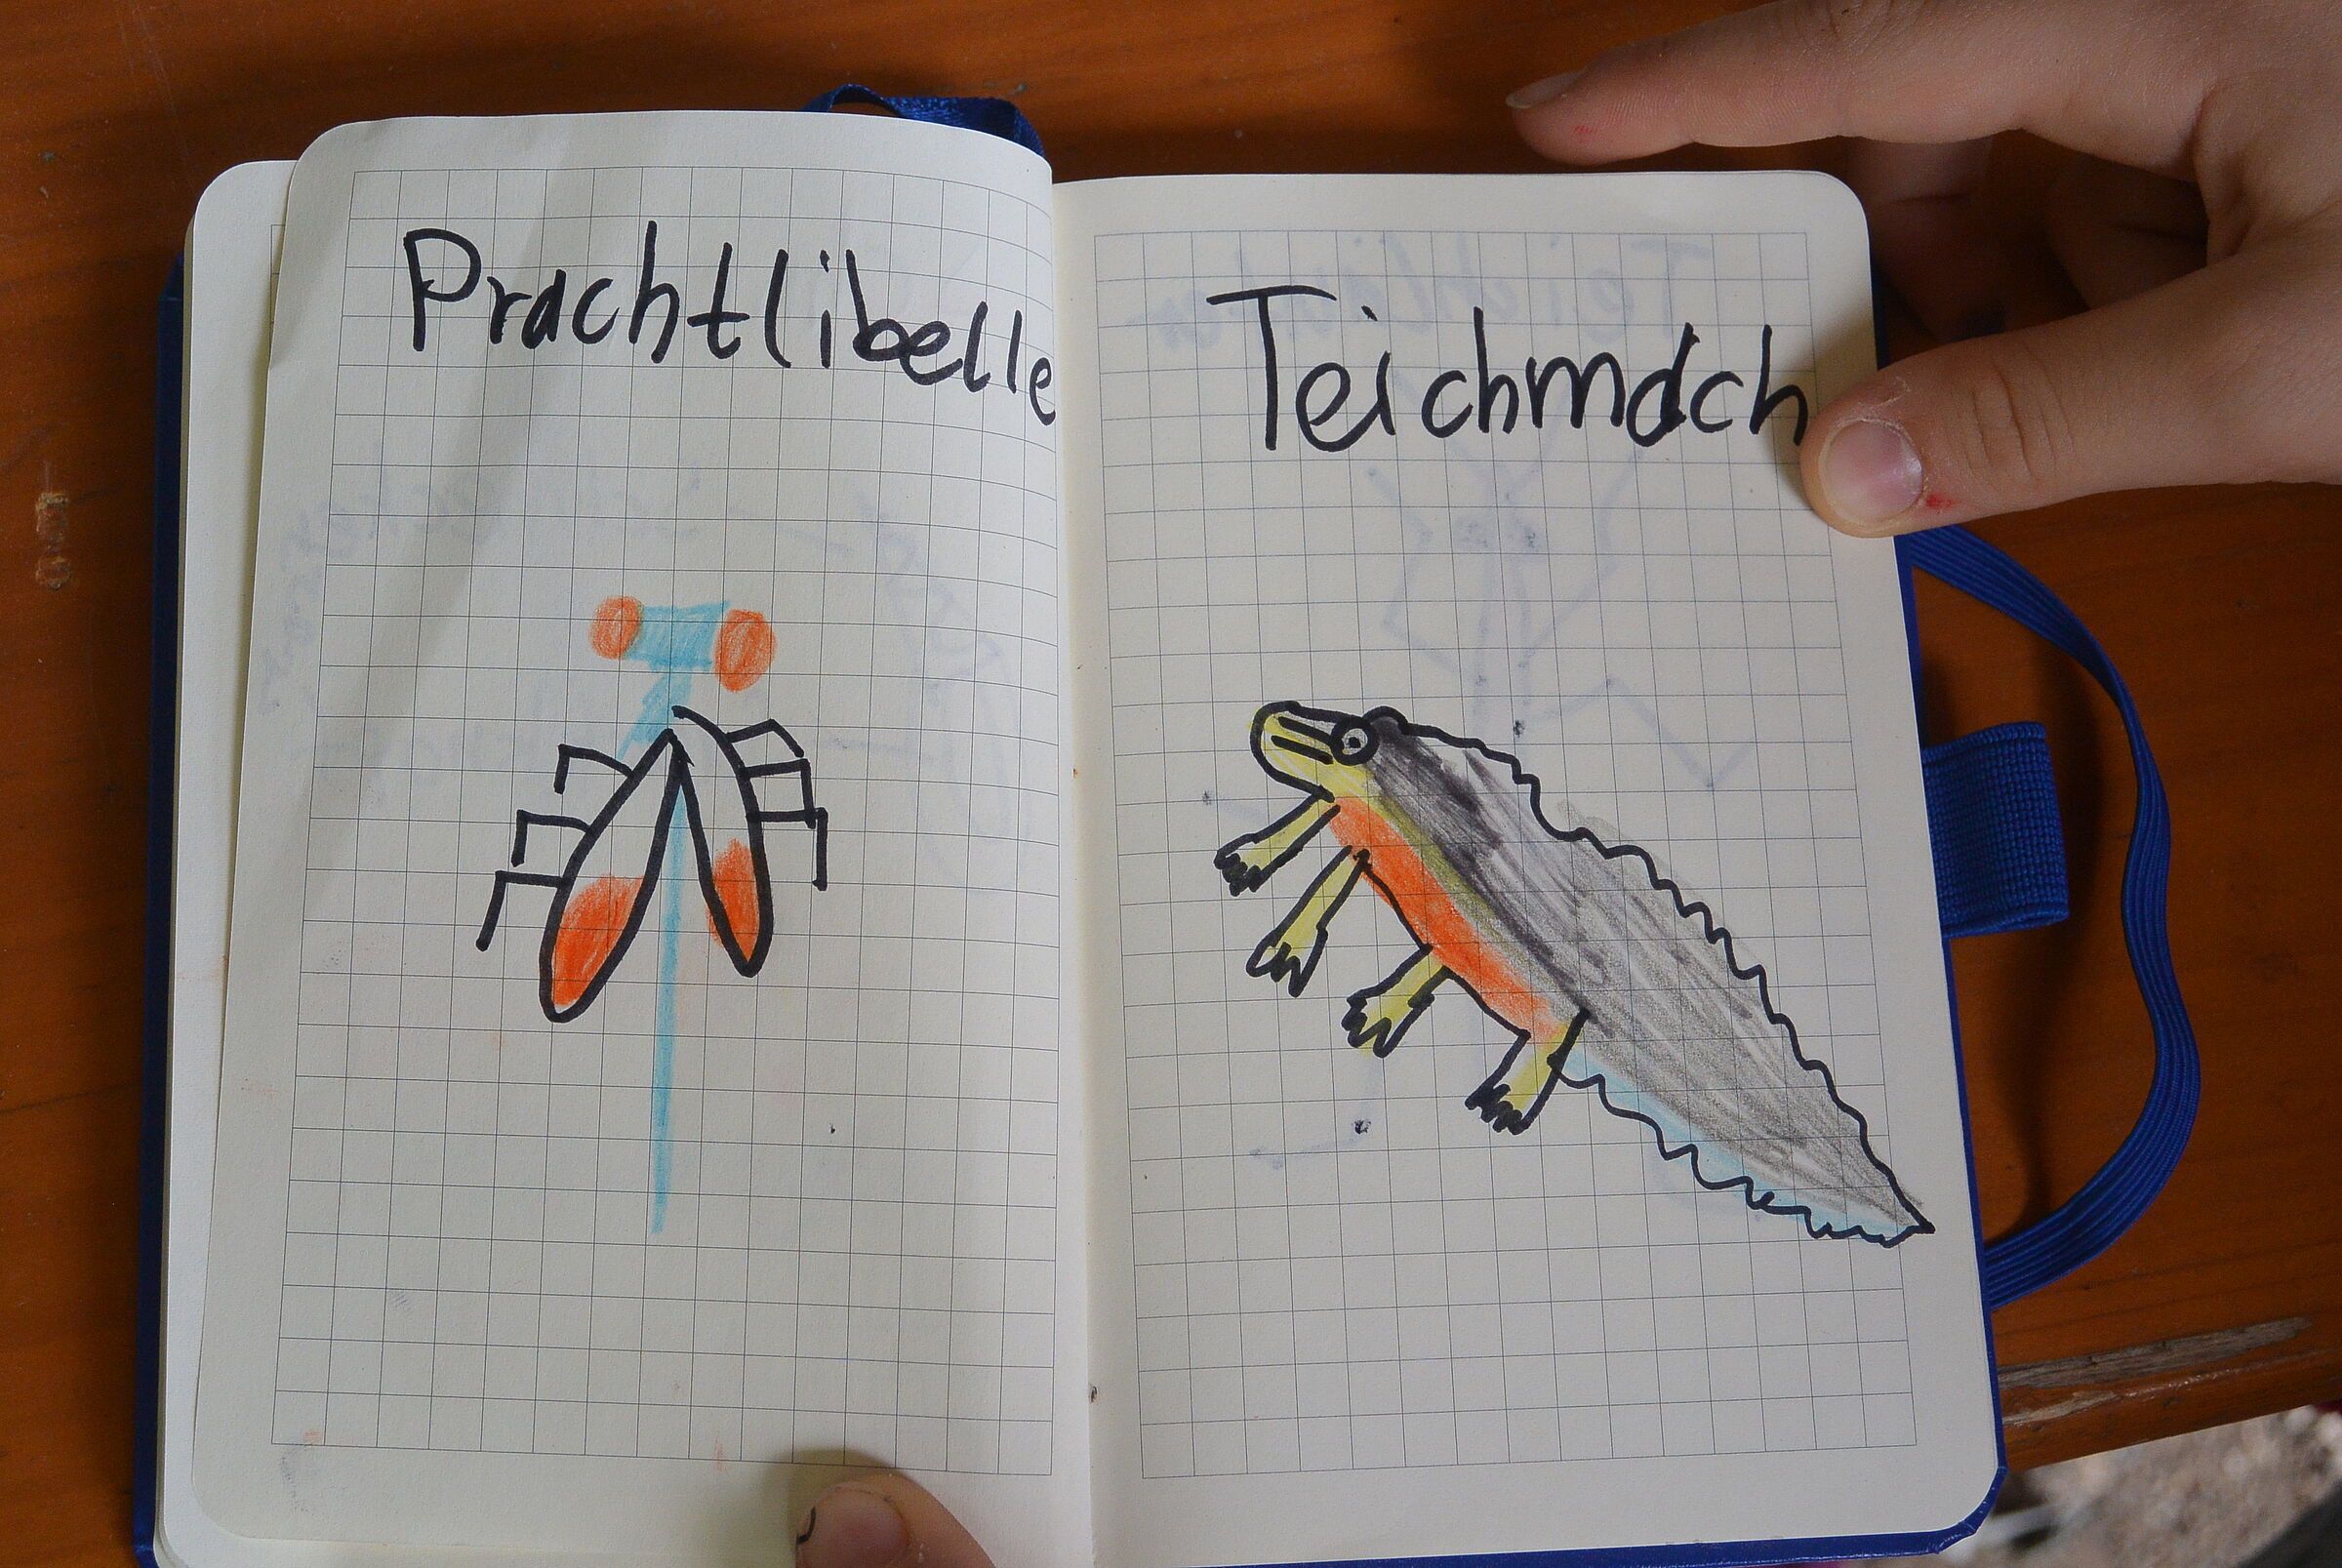 Prachtlibelle
Teichmdch